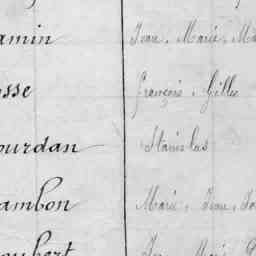 amin Jean, Marie, Ma
osse François, Gilles
ourdan Stanislas
ambon Marie, Jean, Jo
oubert Marie